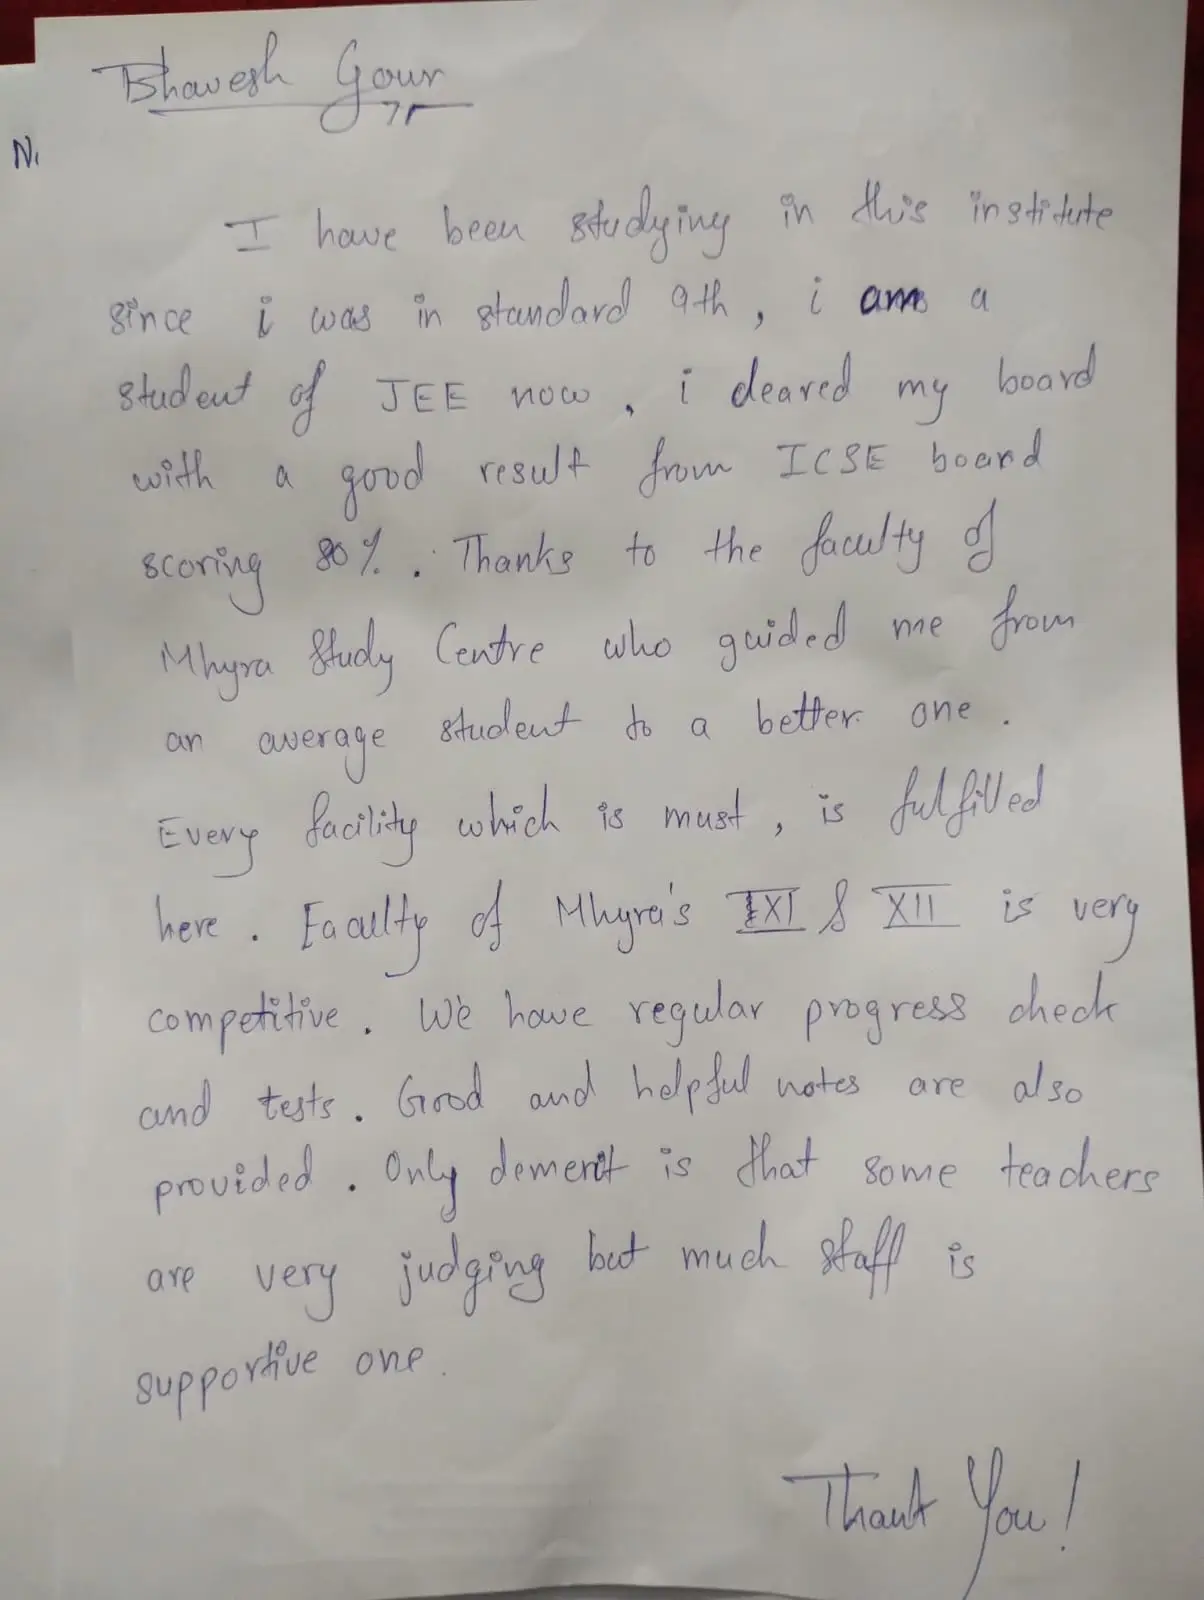 Bhavesh Gour
N
I have been studying in this institute
since i was in standard 9th, i am a
student of JEE now, i cleared my board
with a good result from ICSE board
scoring 80%. Thanks to the faculty of
Mhyra Study Centre who guided me from
an average student to a better one.
Every facility which is must, is fulfilled
here. Faculty of Mhyra's XI & XII is very
competitive. We have regular progress check
and tests. Good and helpful notes are also
provided. Only demerit is that some teachers
are very judging but much staff is
supportive one.
Thank You!